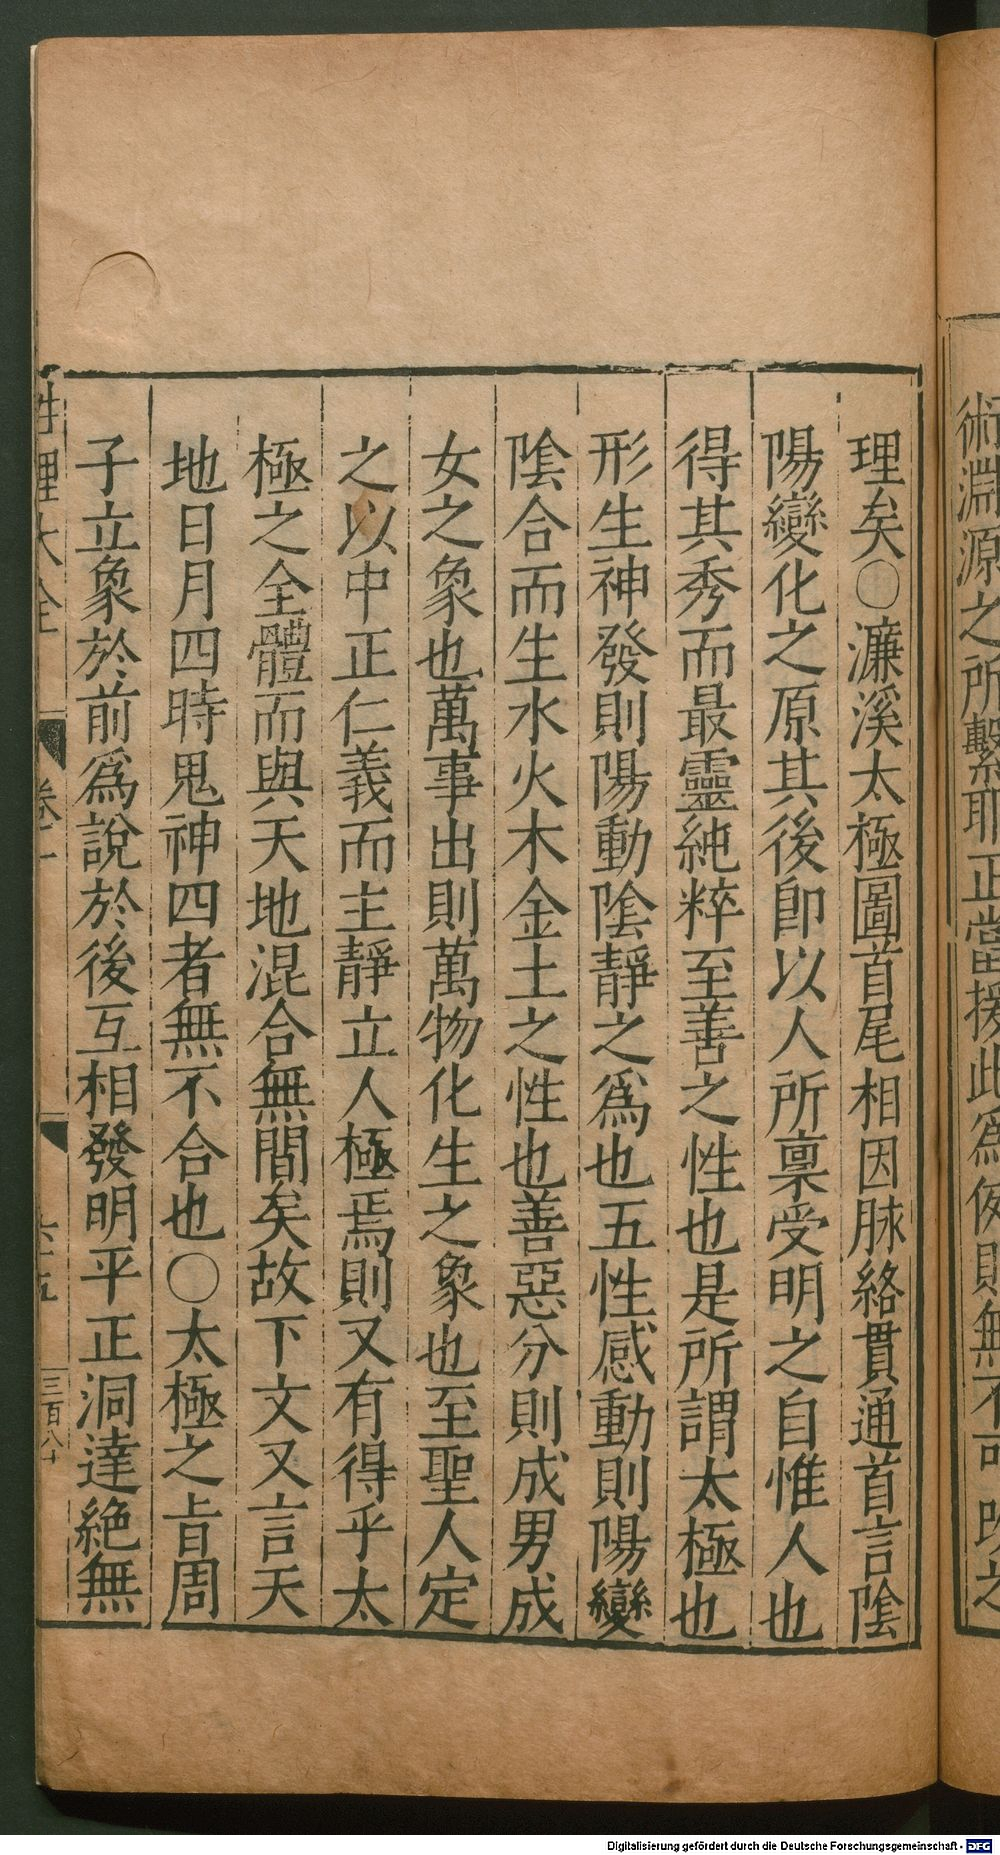 術淵源之所繫耶正當援此爲便則無不可
理矣○濂溪太極圖首尾相因脉絡貫通首言陰
陽變化之原其後卽以人所稟受明之自惟人也
得其秀而最靈純粹至善之性也是所謂太極也
形生神發則陽動陰靜之爲也五性感動則陽變
陰合而生水火木金土之性也善惡分則成男成
女之象也萬事出則萬物化生之象也至聖人定
之以中正仁義而主靜立人極焉則又有得乎太
極之全體而與天地混合無間矣故下文又言天
地日月四時鬼神四者無不合也○太極之旨周
子立象於前爲說於後互相發明平正洞達絶無
性理大全 卷一 六十九 三百八十
Digitalisierung gefördert durch die Deutsche Forschungsgemeinschaft - DFG